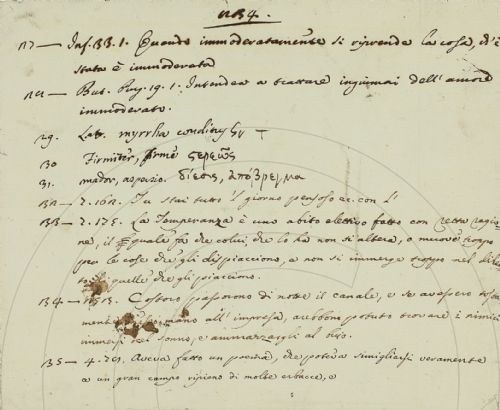 1184.
27 — Inf. 33. 1. Quando immoderatamente si riprende la cosa, ch'è
stata è immoderata
28 — But. Purg. 19. 1. Intendea a trattare ingiumai dell'amore
immoderato.
29. Lat. myrrha conditus
30 Firmiter, firmè στερεῶς
31. mador, aspersio. δίεσις, ἀπόβρεγμα
32 — 2. 162. Tu stai tutto 'l giorno pensoso ec. con l'
33 — 2. 175. La Temperanza è uno abito elettivo fatto con retta ragio
ne, il quale fa che colui, che lo ha non si altera, o muove troppo
per le cose che gli dispiacciono, e non si immerge troppo nel dilet
to di quelle che gli piacciono.
34 — Costoro passorono di notte il canale, e se avessero
mano all'impresa, arebbon potuto trovare i nimici
immersi nel sonno, e ammazzargli al
35 — 4. 29. Aveva fatto un poema, che poteva simigliarsi veramente
a un gran campo ripieno di molte erbacce, e